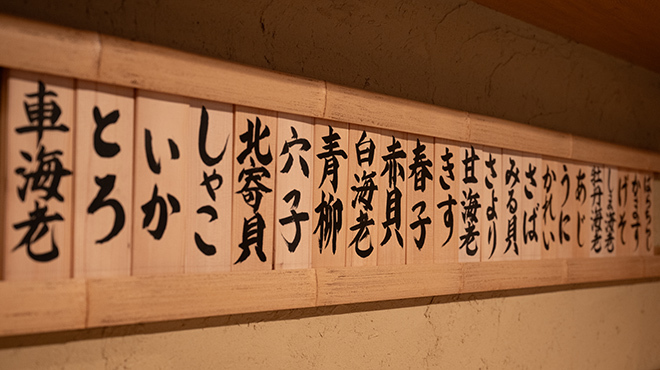 車海老
とろ
いか
しゃこ
北寄貝
穴子
青柳
白海老
赤貝
春子
きす
甘海老
さより
みる貝
さば
かれい
うに
あじ
牡丹海老
しま海老
げそ
かます